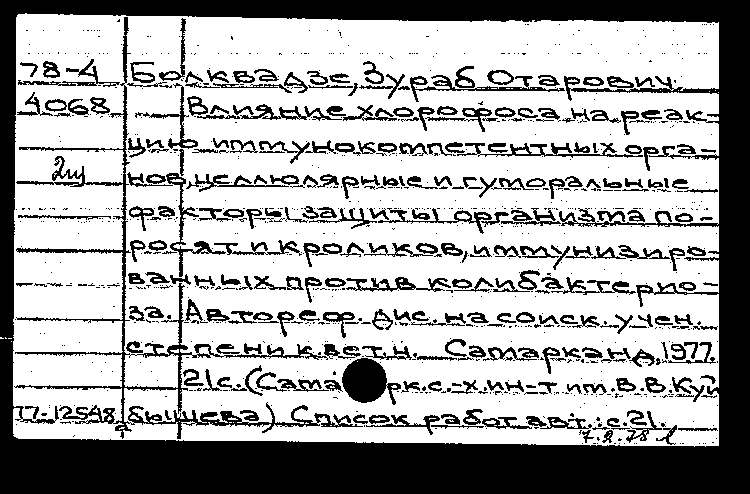 78-4 Болквадзе, Зураб Отарович.
4068 Влияние хлорофоса на реак-
цию иммунокомпетентных орга-
нов, целлюлярные и гуморальные
факторы защиты организма по-
росят и кроликов, иммунизиро-
ванных против колибактерио-
за. Автореф. дис. на соиск. учен.
степени к.вет.н. Самарканд, 1977.
21с. (Сама рк.с.-х.ин-т им. В.В. Куй
П-12548 бышева) Список работ авт.: с.21.
7.2.78